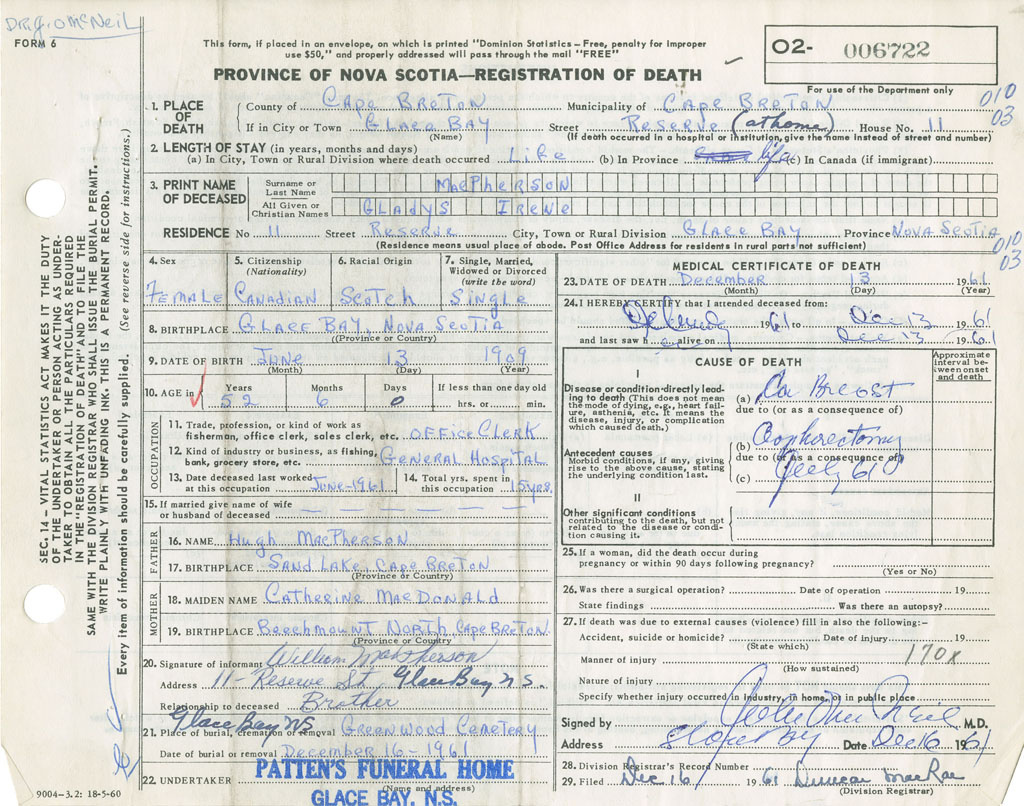 Dr. J. O McNeil
FORM 6
This form, if placed in an envelope, on which is printed "Dominion Statistics – Free, penalty for improper
use $50," and properly addressed will pass through the mail "FREE"
PROVINCE OF NOVA SCOTIA—REGISTRATION OF DEATH
O2- 006722
For use of the Department only
010
03
1. PLACE OF DEATH
County of Cape Breton Municipality of Cape Breton
If in City or Town Glace Bay Street Reserve (at home) House No. 11
(Name) (If death occurred in a hospital or institution, give the name instead of street and number)
2. LENGTH OF STAY (in years, months and days)
(a) In City, Town or Rural Division where death occurred Life (b) In Province life (c) In Canada (if immigrant)
3. PRINT NAME OF DECEASED
Surname or Last Name MacPherson
All Given or Christian Names Gladys Irene
RESIDENCE No 11 Street Reserve City, Town or Rural Division Glace Bay Province Nova Scotia
(Residence means usual place of abode. Post Office Address for residents in rural parts not sufficient)
010
03
4. Sex
Female
5. Citizenship
(Nationality)
Canadian
6. Racial Origin
Scotch
7. Single, Married,
Widowed or Divorced
(write the word)
Single
8. BIRTHPLACE Glace Bay, Nova Scotia
(Province or Country)
9. DATE OF BIRTH June 13 1909
(Month) (Day) (Year)
10. AGE in
Years Months Days If less than one day old
52 6 0 hrs. or min.
OCCUPATION
11. Trade, profession, or kind of work as
fisherman, office clerk, sales clerk, etc. Office Clerk
12. Kind of industry or business, as fishing,
bank, grocery store, etc. General Hospital
13. Date deceased last worked
at this occupation June-1961
14. Total yrs. spent in
this occupation 15 yrs.
15. If married give name of wife
or husband of deceased — — — — — —
FATHER
16. NAME Hugh MacPherson
17. BIRTHPLACE Sand Lake, Cape Breton
(Province or Country)
MOTHER
18. MAIDEN NAME Catherine MacDonald
19. BIRTHPLACE Beechmount North, Cape Breton
(Province or Country)
20. Signature of informant William MacPherson
Address 11 - Reserve St, Glace Bay N.S.
Relationship to deceased Brother
Glace Bay N.S.
21. Place of burial, cremation or removal Greenwood Cemetery
Date of burial or removal December 16 - 1961
22. UNDERTAKER PATTEN'S FUNERAL HOME
(Name and address)
GLACE BAY, N.S.
9004-3.2: 18-5-60
MEDICAL CERTIFICATE OF DEATH
23. DATE OF DEATH December 13 1961
(Month) (Day) (Year)
24. I HEREBY CERTIFY that I attended deceased from:
1961 to Dec 13 1961
and last saw h er alive on Dec 13 1961
CAUSE OF DEATH
Approximate
interval be-
tween onset
and death
I
Disease or condition directly lead-
ing to death (This does not mean
the mode of dying, e.g., heart fail-
ure, asthenia, etc. It means the
disease, injury, or complication
which caused death.)
(a) Ca Breast
due to (or as a consequence of)
Antecedent causes
Morbid conditions, if any, giving
rise to the above cause, stating
the underlying condition last.
(b) Oophorectomy
due to (or as a consequence of)
(c) July 61
II
Other significant conditions
contributing to the death, but not
related to the disease or condi-
tion causing it.
25. If a woman, did the death occur during
pregnancy or within 90 days following pregnancy?
(Yes or No)
26. Was there a surgical operation? Date of operation 19
State findings Was there an autopsy?
27. If death was due to external causes (violence) fill in also the following:-
Accident, suicide or homicide? Date of injury 19
(State which)
Manner of injury 170X
(How sustained)
Nature of injury
Specify whether injury occurred in industry, in home, or in public place
Signed by M.D.
Address Glace Bay Date Dec 16 1961
28. Division Registrar's Record Number
29. Filed Dec 16 1961 Duncan MacRae
(Division Registrar)
SEC. 14 - VITAL STATISTICS ACT MAKES IT THE DUTY
OF THE UNDERTAKER OR PERSON ACTING AS UNDER-
TAKER TO OBTAIN ALL THE PARTICULARS REQUIRED
IN THE "REGISTRATION OF DEATH" AND TO FILE THE
SAME WITH THE DIVISION REGISTRAR WHO SHALL ISSUE THE BURIAL PERMIT.
WRITE PLAINLY WITH UNFADING INK. THIS IS A PERMANENT RECORD.
Every item of information should be carefully supplied. (See reverse side for instructions.)